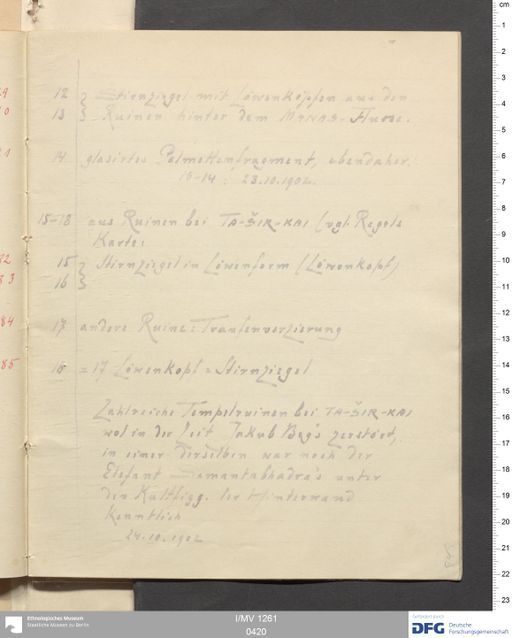 12 } Stirnziegel mit Löwenköpfen aus den
13 } Ruinen hinter dem MANAS-Flusse.
14 glasirtes Palmettenfragment, ebendaher.
12-14 : 23.10.1902.
15-18 aus Ruinen bei TA-ŠIR-KAI (vgl. Regels
Karte:
15 } Stirnziegel in Löwenform (Löwenkopf)
16 }
17 andere Ruine: Traufenverzierung
18 = 17 Löwenkopf = Stirnziegel
Zahlreiche Tempelruinen bei TA-ŠIR-KAI
wol in der Zeit Jakub Beg's zerstört,
in einer derselben war noch der
Elefant Samantabhadra's unter
den der Hinterwand
kenntlich
24.10.1902
cm
1
2
3
4
5
6
7
8
9
10
11
12
13
14
15
16
17
18
19
20
21
22
23
84
85
Ethnologisches Museum
Staatliche Museen zu Berlin
I/MV 1261
0420
Gefördert durch
DFG Deutsche
Forschungsgemeinschaft